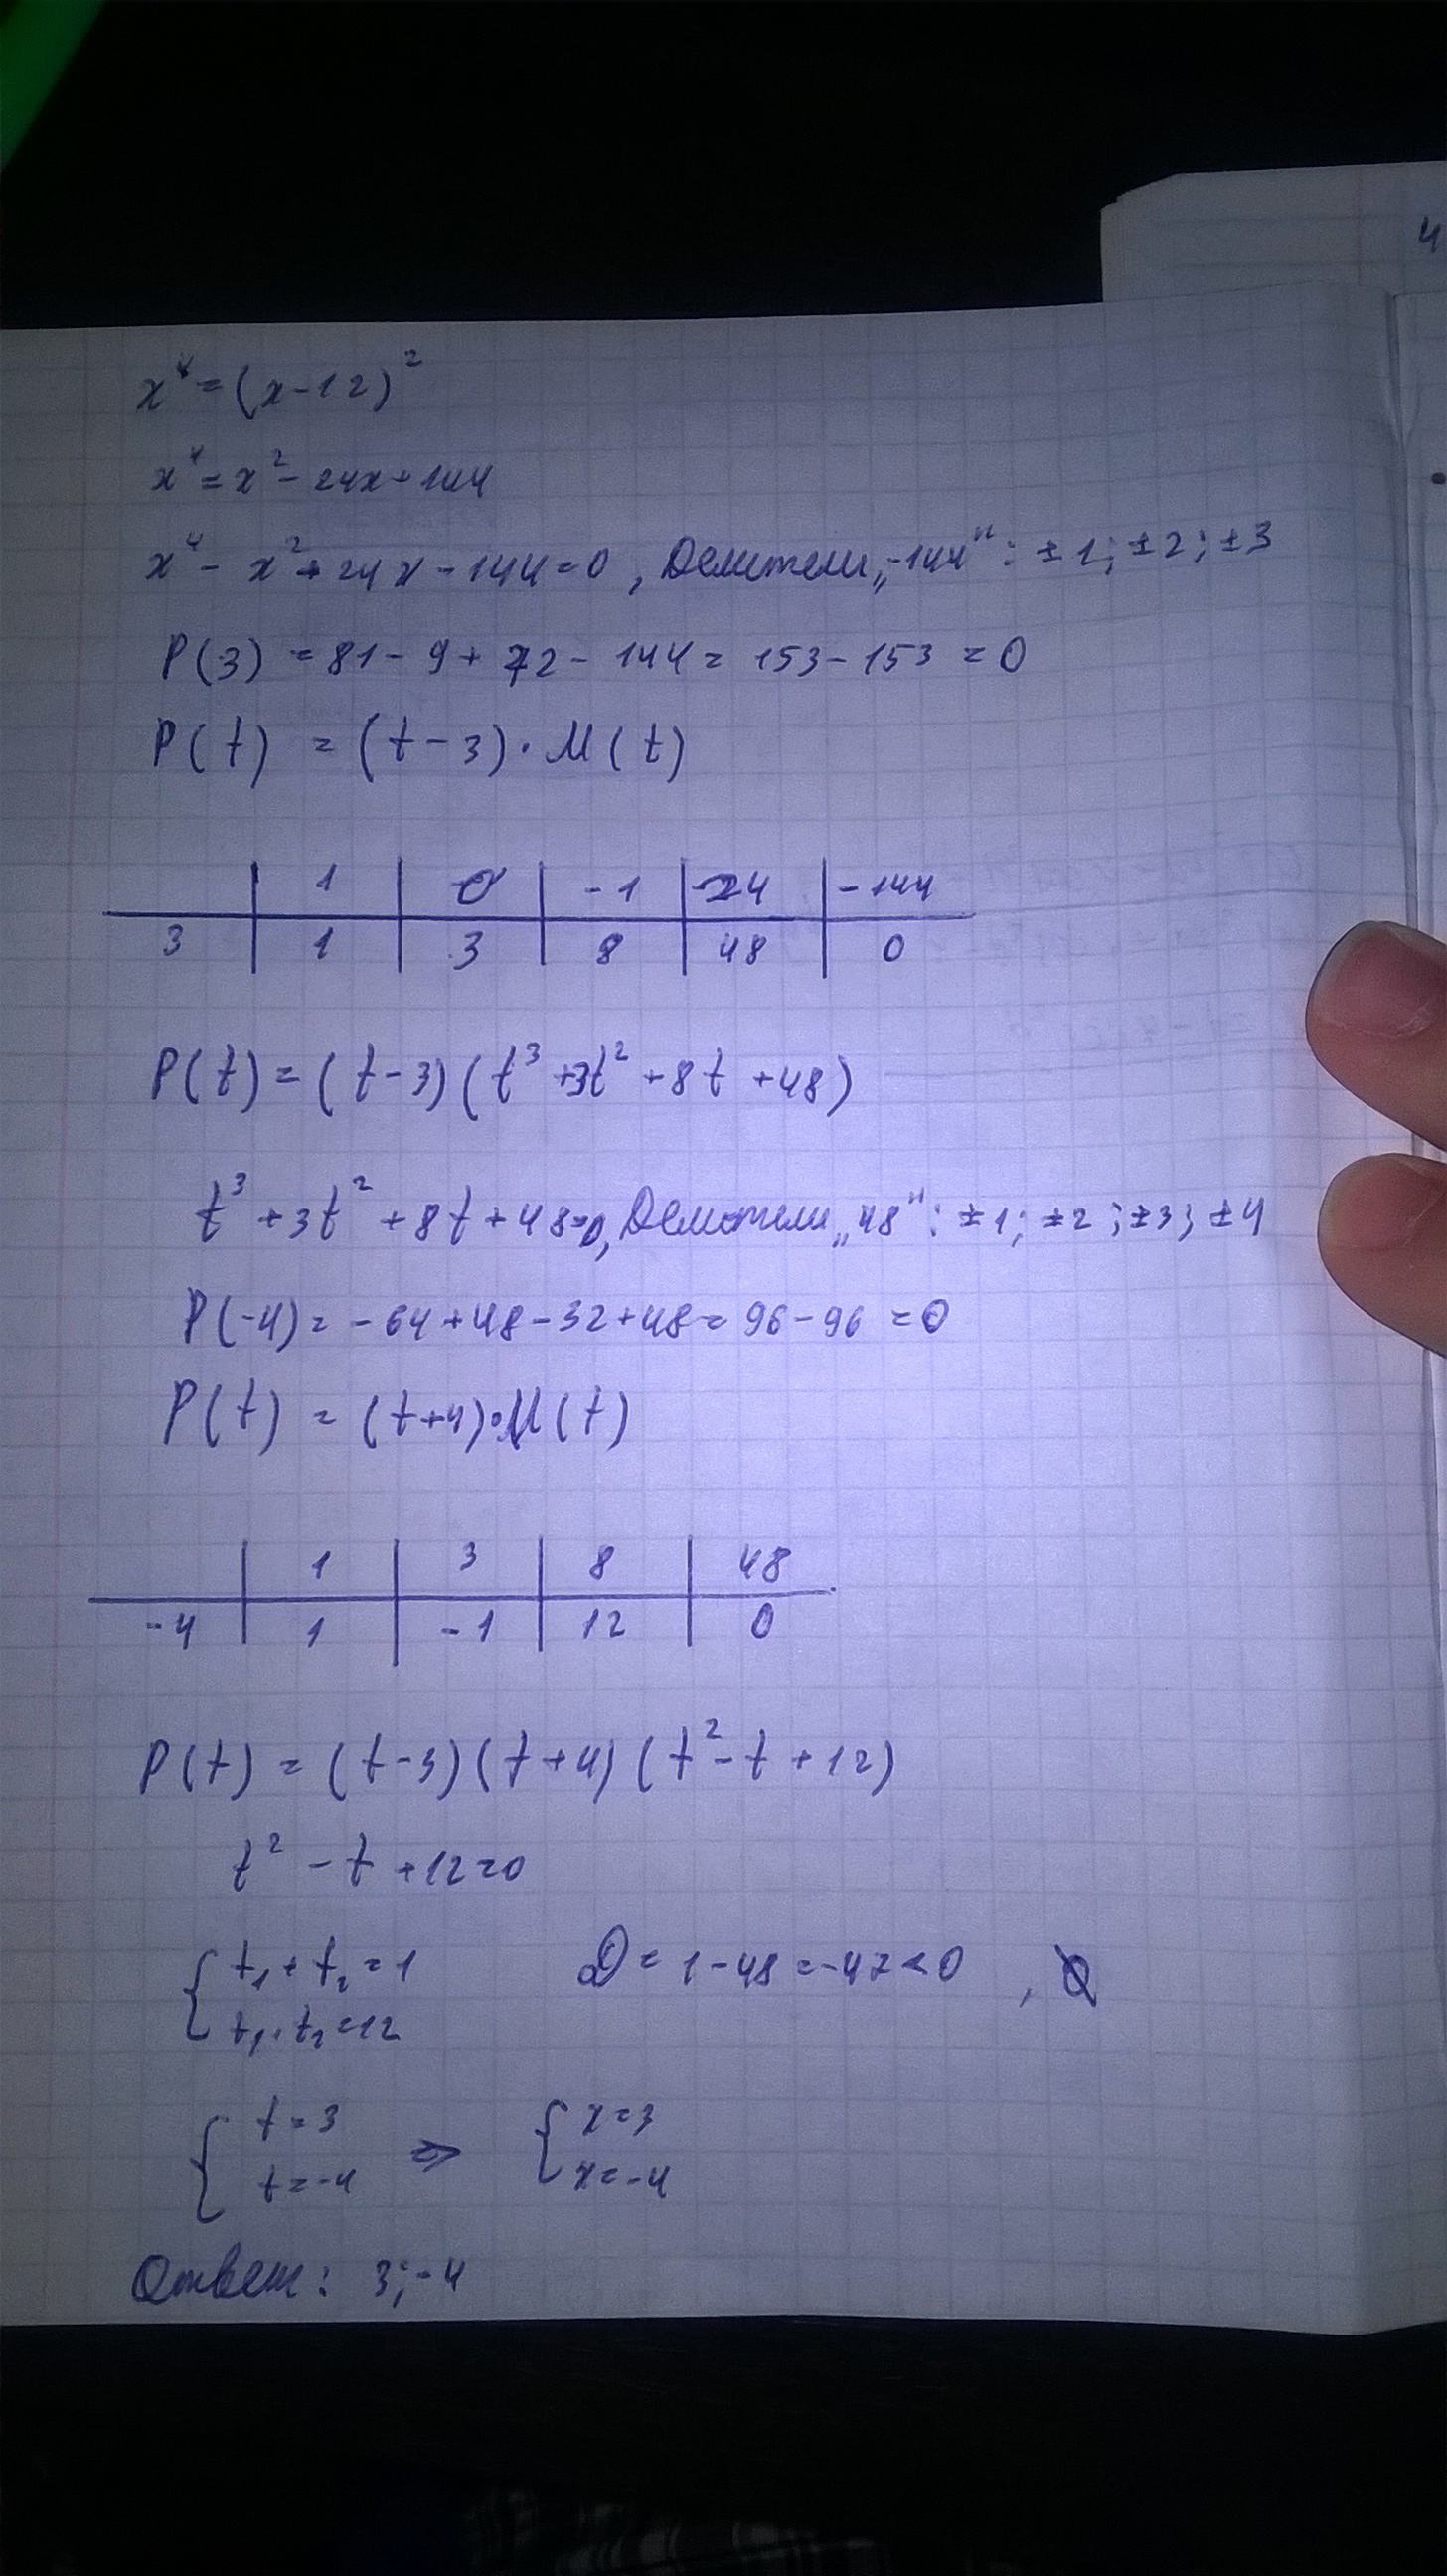 4
x⁴=(x-12)²
x⁴=x²-24x+144
x⁴-x²+24x-144=0, Делители „-144": ±1; ±2; ±3
P(3) = 81-9+72-144=153-153=0
P(t) = (t-3)·M(t)
1 0 -1 24 -144
3 1 3 8 48 0
P(t)=(t-3)(t³+3t²+8t+48)
t³+3t²+8t+48=0, Делители „48": ±1; ±2; ±3; ±4
P(-4)=-64+48-32+48=96-96=0
P(t) = (t+4)·M(t)
1 3 8 48
-4 1 -1 12 0
P(t)=(t-3)(t+4)(t²-t+12)
t²-t+12=0
{ t₁+t₂=1 D=1-48=-47<0, Ø
t₁·t₂=12
{ t=3 => { x=3
t=-4 x=-4
Ответ: 3;-4